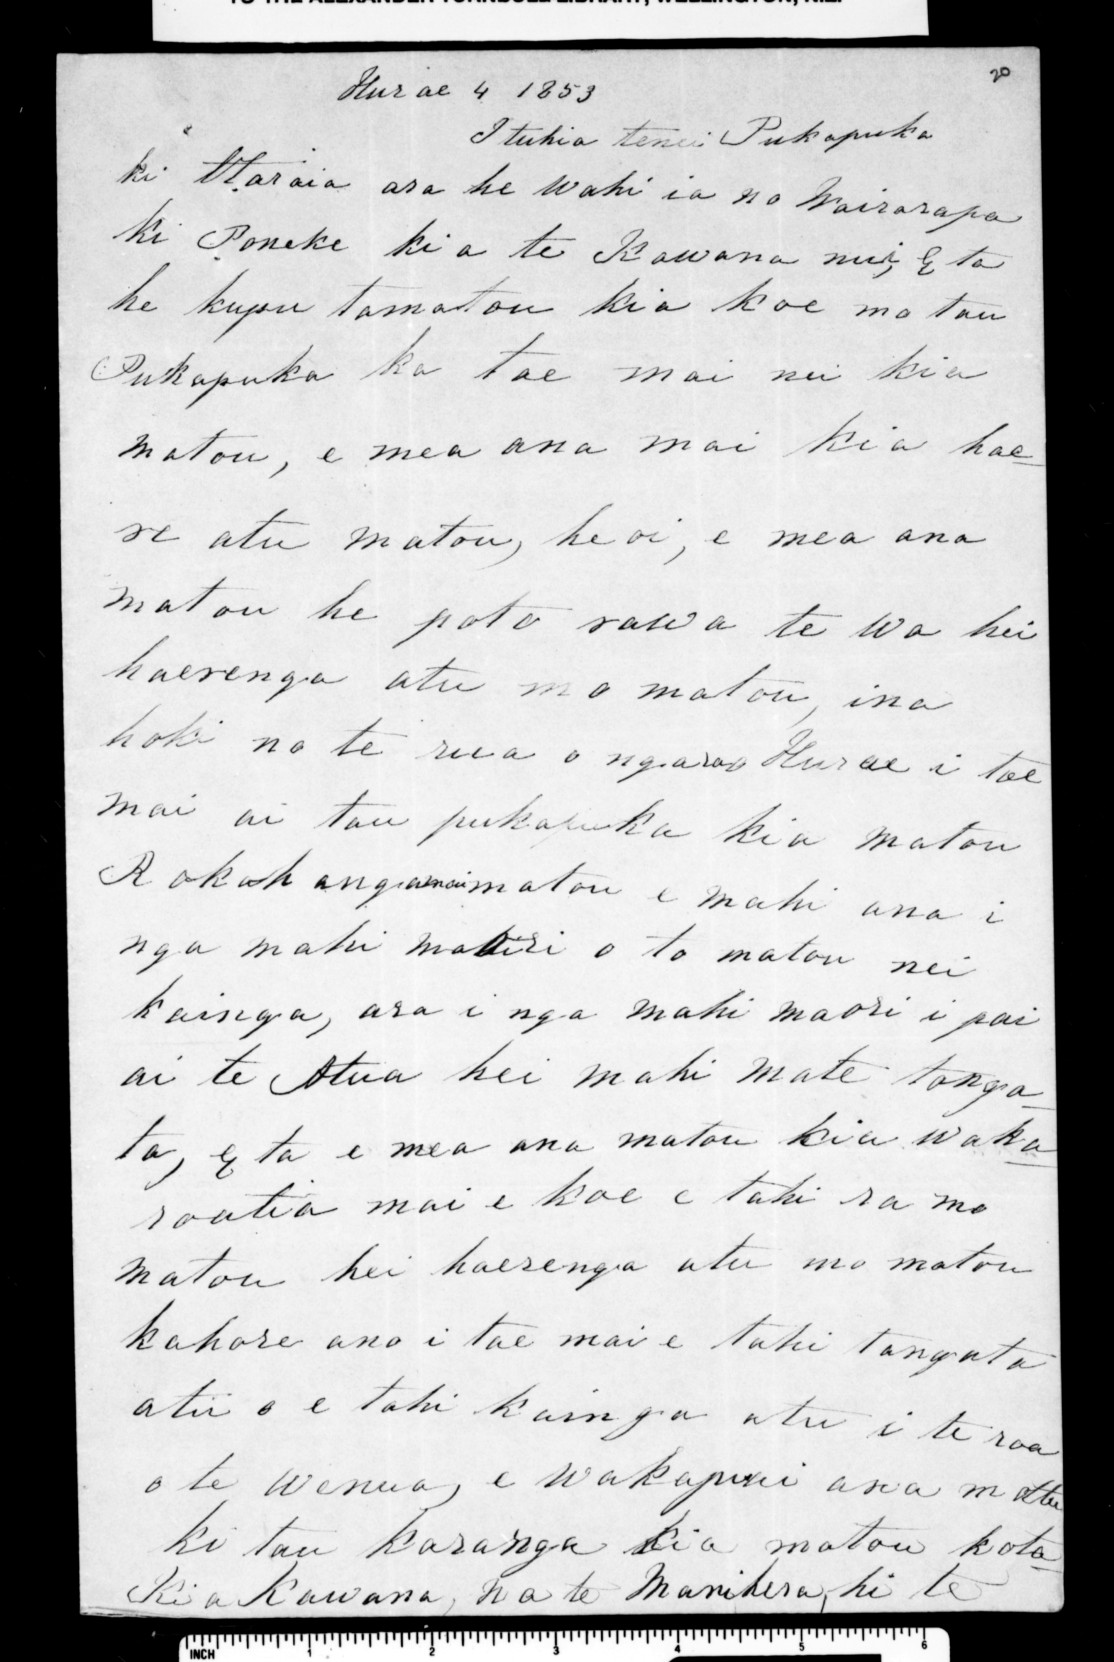 TO THE ALEXANDER TURNBULL LIBRARY, WELLINGTON, N.Z.
20
Hurae 4 1853
I tuhia tenei Pukapuka
ki Otaraia ara he wahi ia no Wairarapa
ki Poneke ki a te Kawana nui, E ta
he kupu tamatou kia koe mo tau
Pukapuka ka tae mai nei kia
matou, e mea ana mai kia hae-
re atu matou, heoi, e mea ana
matou he poto rawa te wa hei
haerenga atu mo matou, ina
hoki no te rua o ngaraa Hurae i tae
mai ai tau pukapuka kia matou
Rokohanga mai matou e mahi ana i
nga mahi maori o to matou nei
kainga, ara i nga mahi maori i pai
ai te Atua hei mahi mate tanga-
ta, E ta e mea ana matou kia waka-
roatia mai e koe e tahi ra mo
matou hei haerenga atu mo matou
kahore ano i tae mai e tahi tangata
atu o e tahi kainga atu i te roa
o te wenua, e wakapuai ana matu
ki tau karanga kia matou kota-
Kia Kawana, na te Manihera, ki te
INCH 1 2 3 4 5 6